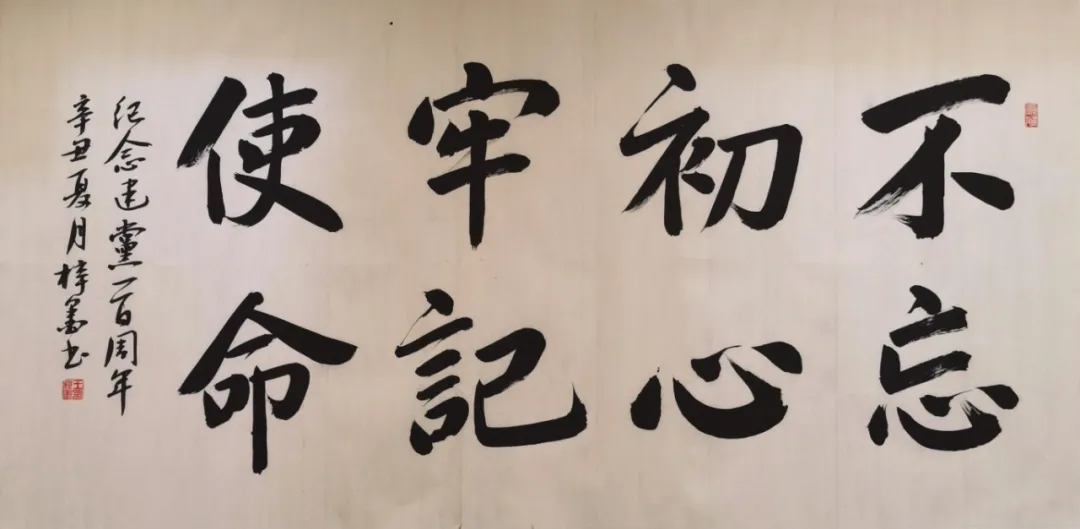 不忘
初心
牢記
使命
纪念建黨一百周年
辛丑夏月梓墨书